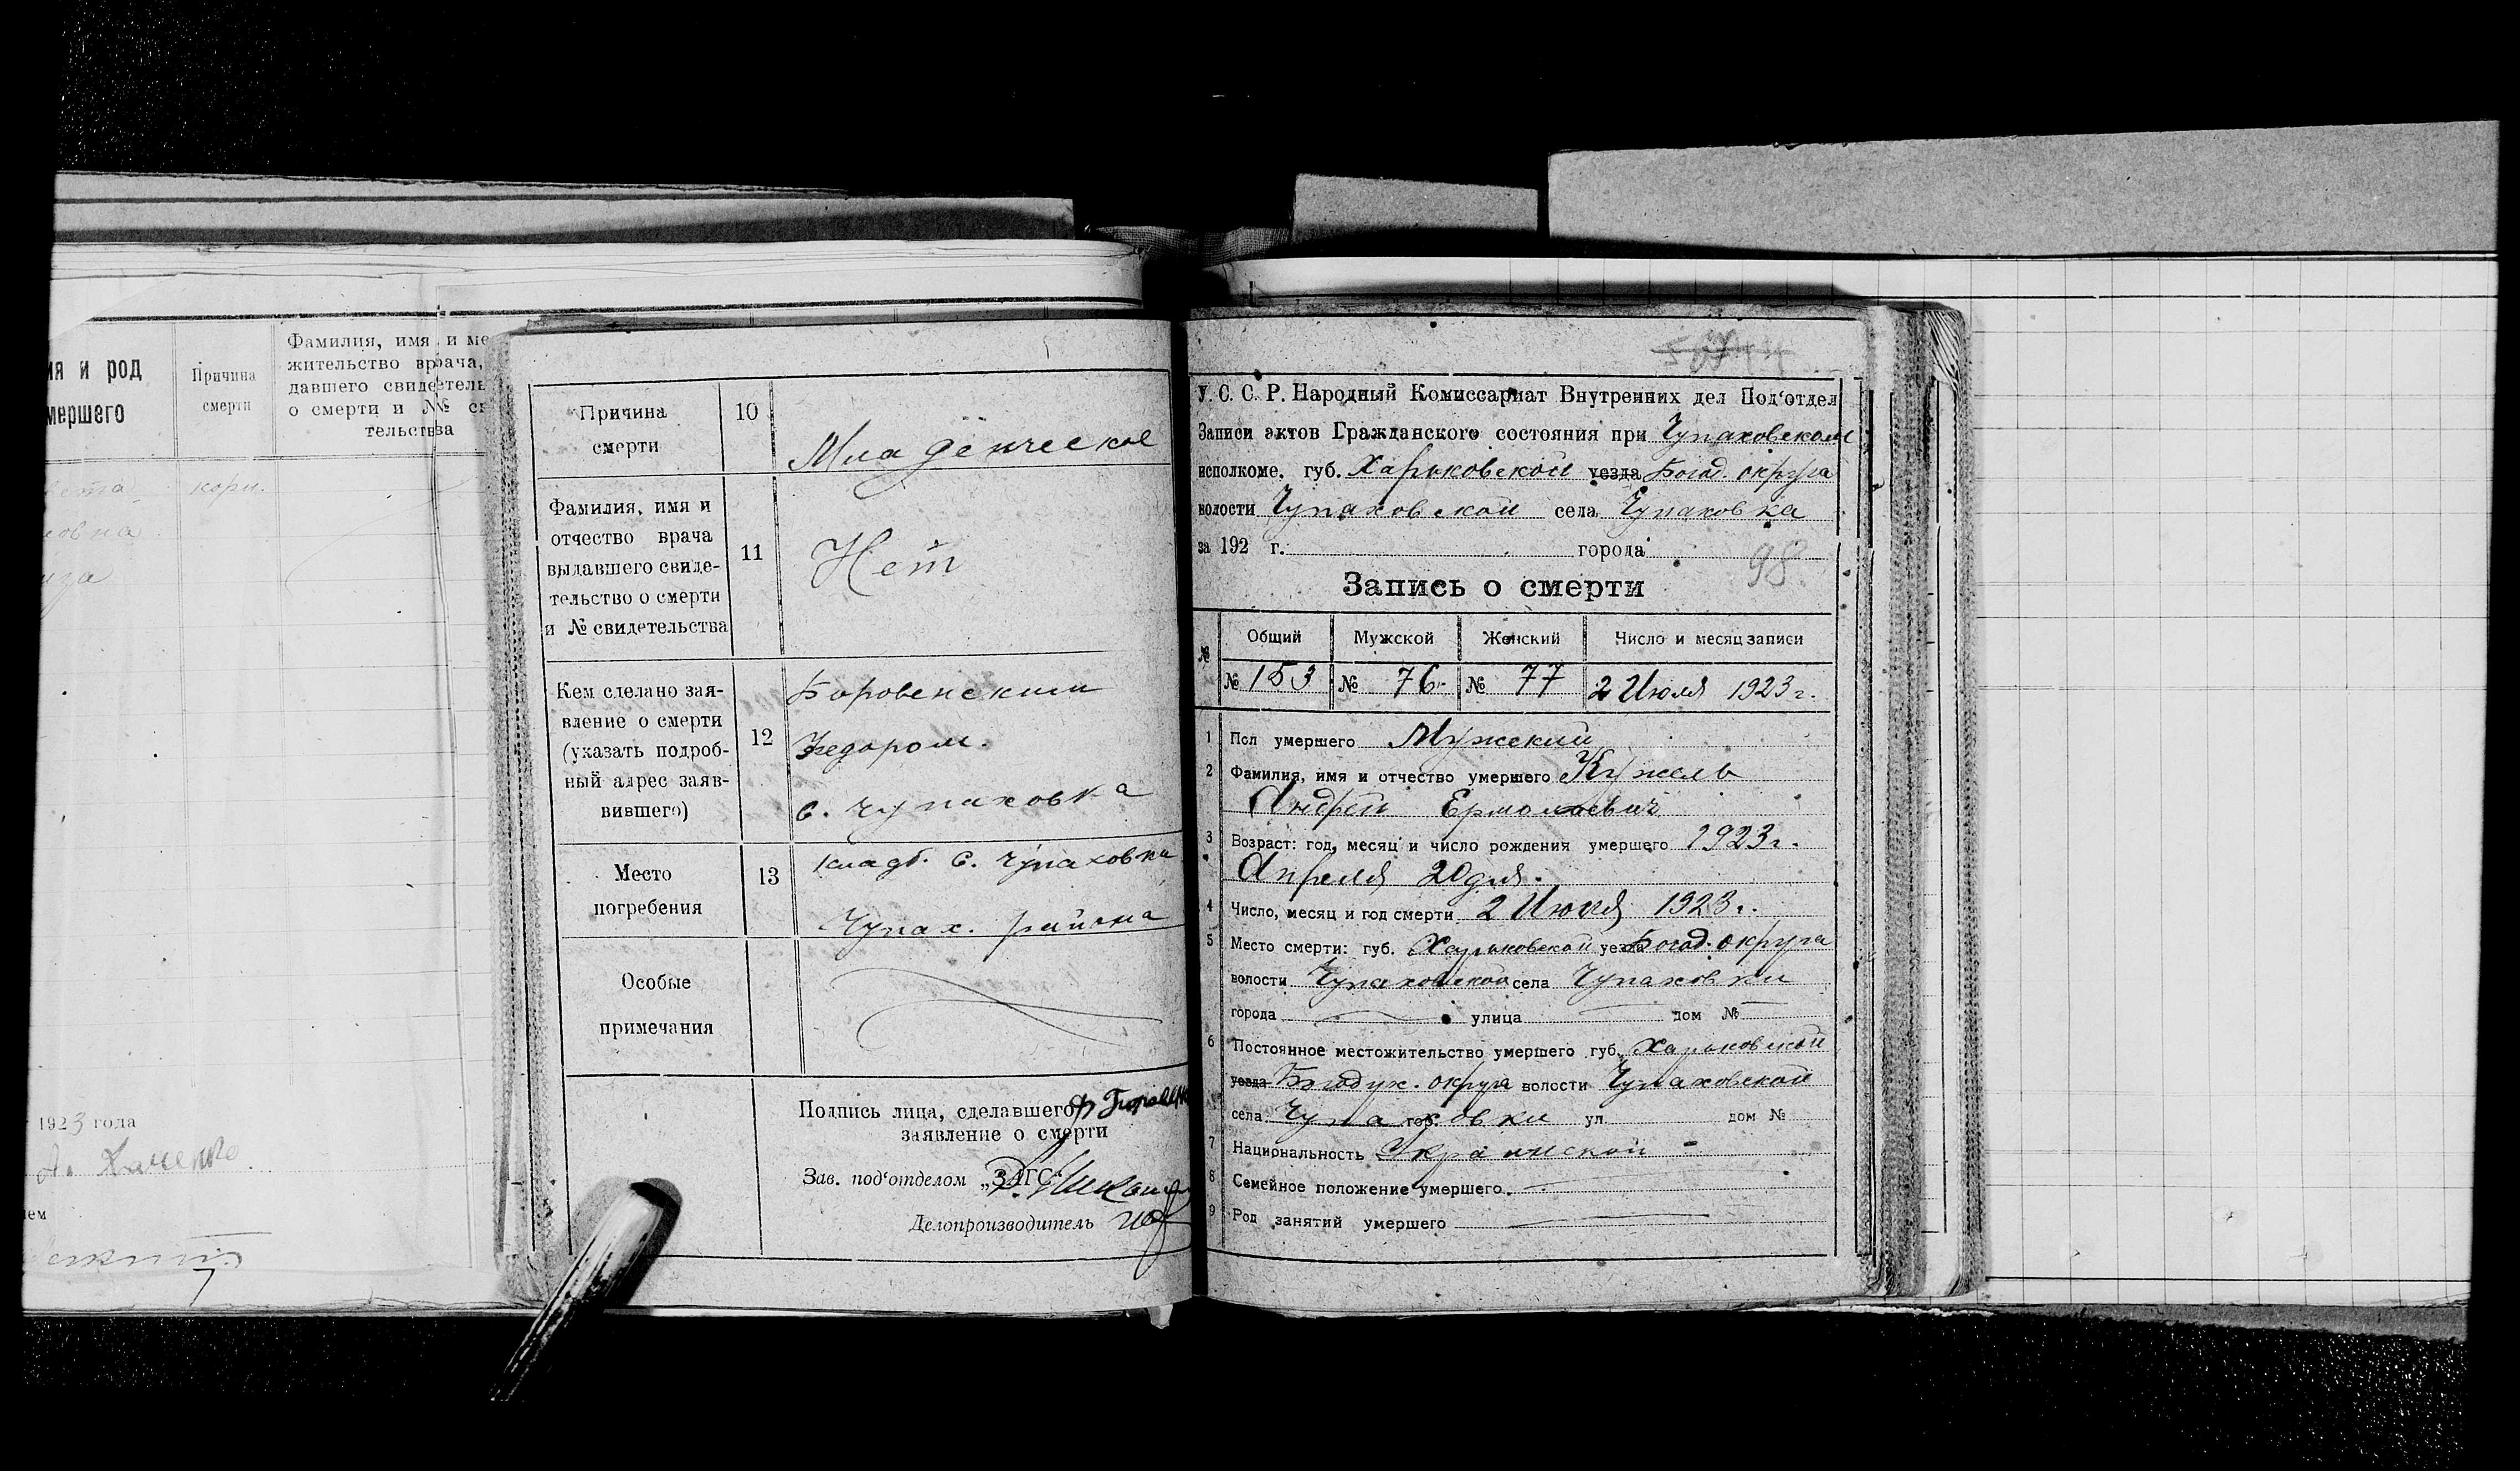 ия и род
мершего
Причина
смерти
Фамилия, имя и ме
жительство врача,
давшего свидетель
о смерти и № св
тельства
корн.
овна
1923 года
7
Причина
смерти
10
Младенческое
Фамилия, имя и
отчество врача
выдавшего свиде-
тельство о смерти
и № свидетельства
11
Нет
Кем сделано зая-
вление о смерти
(указать подроб-
ный адрес заяв-
вившего)
12
Боровенским
Федором.
с. Чупаховка
Место
погребения
13
кладб. с. Чупаховки
Чупах. района
Особые
примечания
Подпись лица, сделавшего
заявление о смерти
Зав. под'отделом „ЗАГС“
Делопроизводитель
У. С. С. Р. Народный Комиссариат Внутренних дел Под'отдел
Записи актов Гражданского состояния при Чупаховском
исполкоме. губ. Харьковской уезда Богод. округа
волости Чупаховской села Чупаховка
за 192 г. города
98
Запись о смерти
№ Общий Мужской Женский Число и месяц записи
№ 153 № 76 № 77 2 Июля 1923 г.
1 Пол умершего Мужский
2 Фамилия, имя и отчество умершего Кужель
Андрей Ермолаевич
3 Возраст: год, месяц и число рождения умершего 1923 г.
Апреля 20 дня.
4 Число, месяц и год смерти 2 Июля 1923 г.
5 Место смерти: губ. Харьковской уезд Богод. округа
волости Чупаховской села Чупаховки
города улица дом №
6 Постоянное местожительство умершего губ. Харьковской
уезда Богодух. округа волости Чупаховской
села Чупаховки гор. ул. дом №
7 Национальность Украинской
8 Семейное положение умершего
9 Род занятий умершего